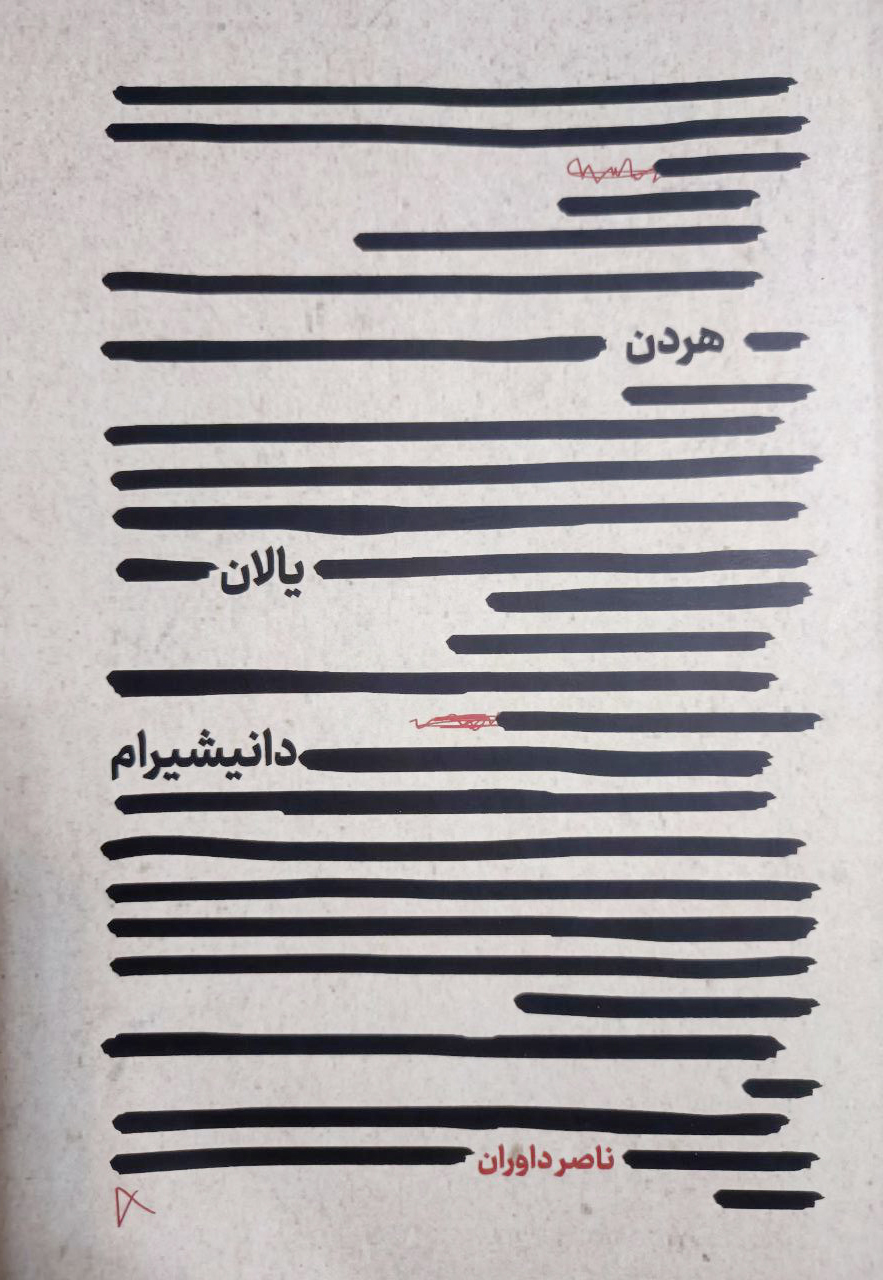 هردن
یالان
دانیشیرام
ناصر داوران